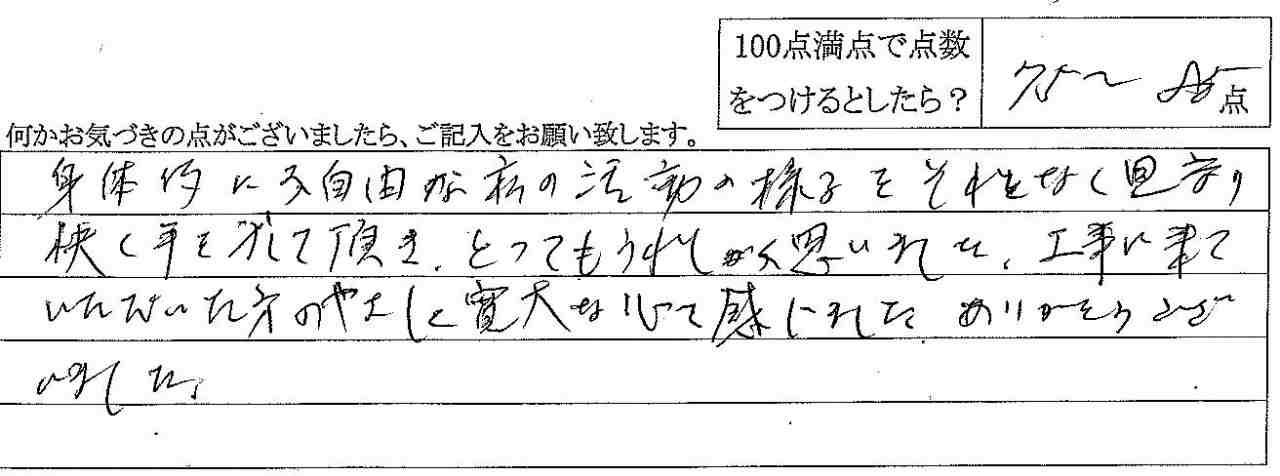 100点満点で点数
をつけるとしたら？
75〜85点
何かお気づきの点がございましたら、ご記入をお願い致します。
身体的に不自由な私の活動の様子をそれとなく見守り
快く手を貸して頂き、とってもうれしく思いました、工事に来て
いただいた方のやさしと寛大な心で感じました ありがとうござ
いました。